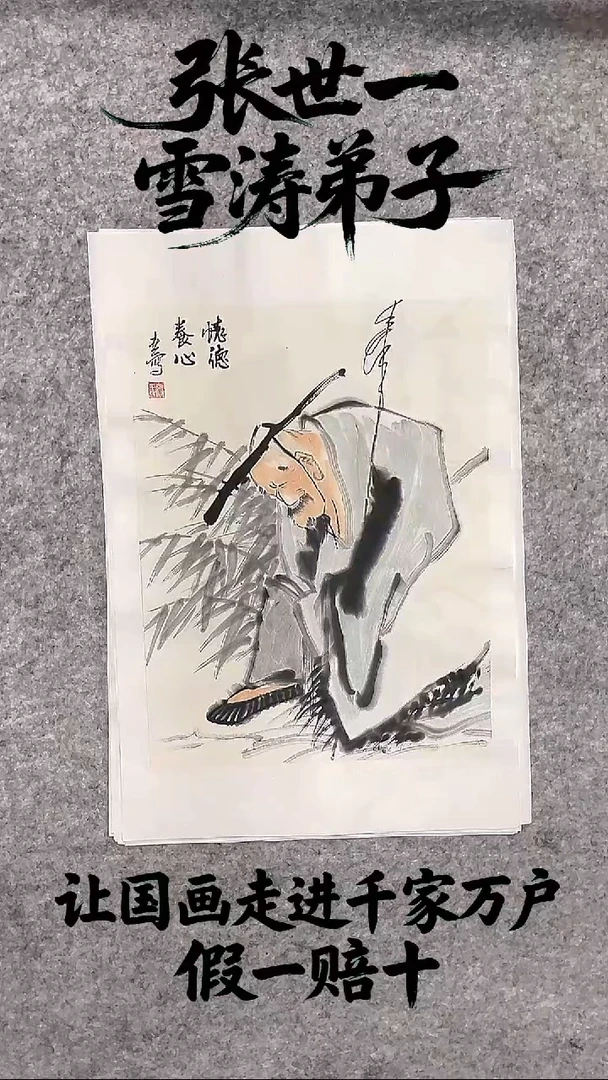 张世一
雪涛弟子
德
養心
让国画走进千家万户
假一赔十